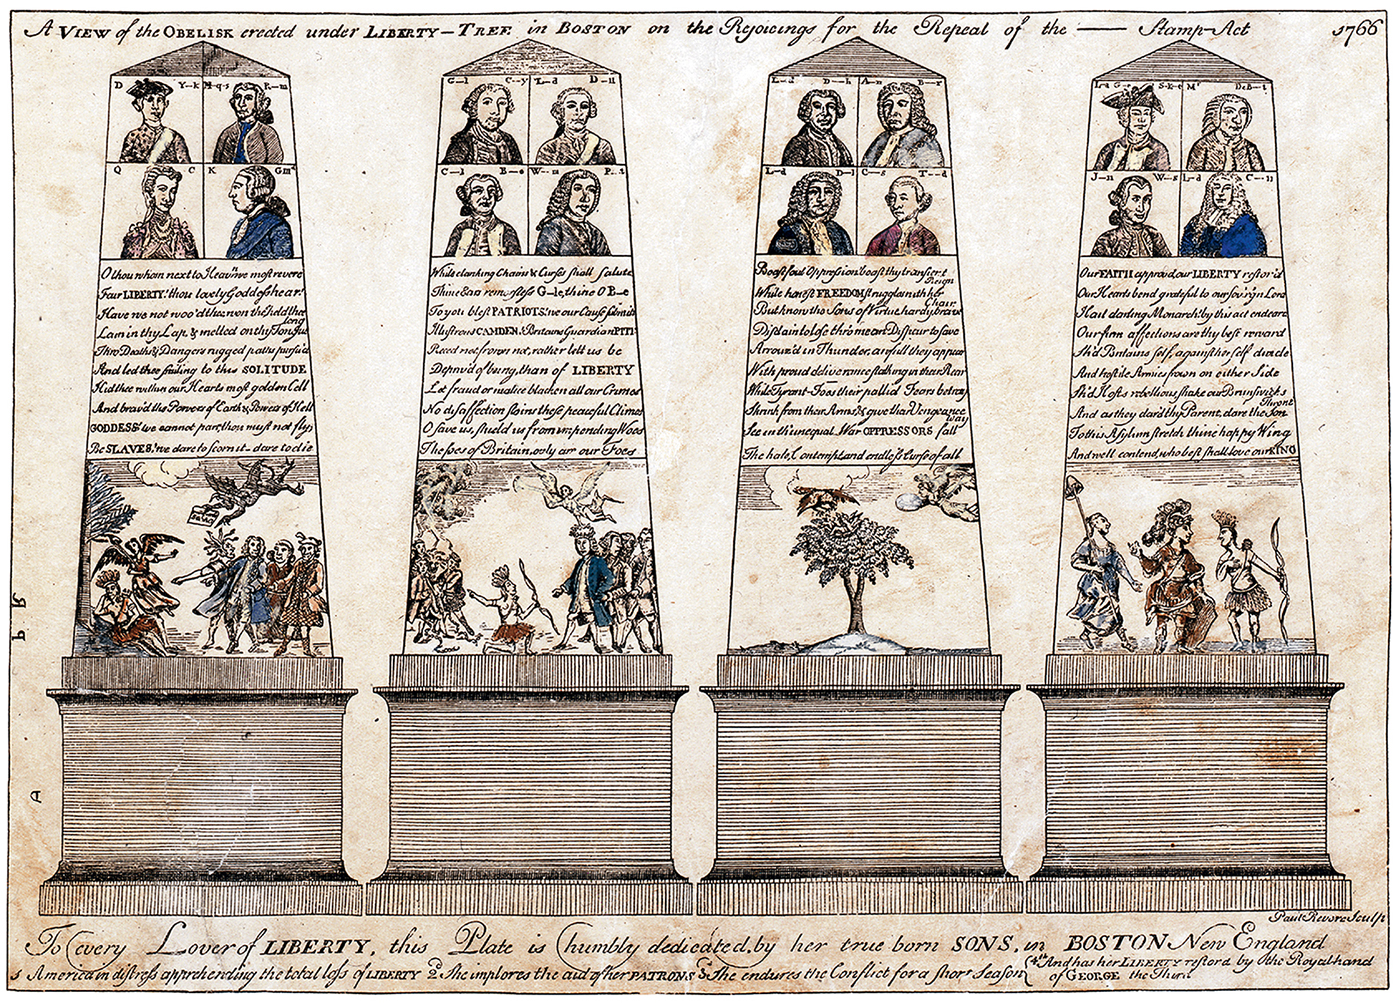 A VIEW of the OBELISK erected under LIBERTY–TREE in BOSTON on the Rejoicings for the Repeal of the —— Stamp-Act 1766
D Y–k M–q–s R–m
Q C K G
G–l C–y L–d D–ll
C–l B–e W–m P–t
L–d D–h A–n B–r
L–d D–l C–s T–d
L–d G–e S–k–e Mr DeB–t
J–n W–s L–d C–n
O thou whom next to Heav'n we most revere
Fair LIBERTY! thou lovely Goddess hear!
Have we not woo'd thee, won thee, held thee long
Lain in thy Lap & melted on thy Tongue
Thro Deaths & Dangers rugged paths pursu'd
And led thee smiling to this SOLITUDE
Hid thee within our Hearts most golden Cell
And brav'd the Powers of Earth & Powers of Hell
GODDESS! we cannot part, thou must not fly;
Be SLAVES! we dare to scorn it – dare to die
While clanking Chains & Curses shall salute
Thine Ears remorseless G–le, thine O B–e
To you blest PATRIOTS, we our Cause submit
Illustrous CAMDEN & Britains Guardian PITT
Recede not, frown not, rather let us be
Depriv'd of being, than of LIBERTY
Let fraud or malice blacken all our Crimes
No disaffection stains these peaceful Climes
O save us, shield us from impending Woes
The foes of Britain, only are our Foes
Boast foul Oppression! boast thy transient Reign
While honest FREEDOM struggles with her Chain
But know the Sons of Virtue, hardy, brave
Disdain to lose thro mean Dispair to save
Arrouz'd in Thunder, awfull they appear
With proud deliverance stalking in their Rear
While Tyrant-Foes their pallid Fears betray
Shrink from their Arms, & give their Vengeance way
See in th' unequal War OPPRESSORS fall
The hate, Contempt and endless Curse of all
Our FAITH approv'd, our LIBERTY restor'd
Our Hearts bend grateful to our sov'r'gn Lord
Hail darling Monarch! by this act endear'd
Our firm affections are thy best reward
Sh'd Britains self, against her self divide
And hostile Armies frown on either Side
Sh'd Hosts rebellious, shake our Brunswick's Throne
And as they dar'd thy Parent, dare the Son
To this Asylum stretch thine happy Wing
And we'll contend, who best shall love our KING
Paul Revere Sculp
To every Lover of LIBERTY, this Plate is humbly dedicated, by her true born SONS, in BOSTON New England
America in distress apprehending the total loss of LIBERTY 2d She implores the aid of her PATRONS 3d She endures the Conflict for a short Season 4th And has her LIBERTY restord by the Royal hand of GEORGE the Third